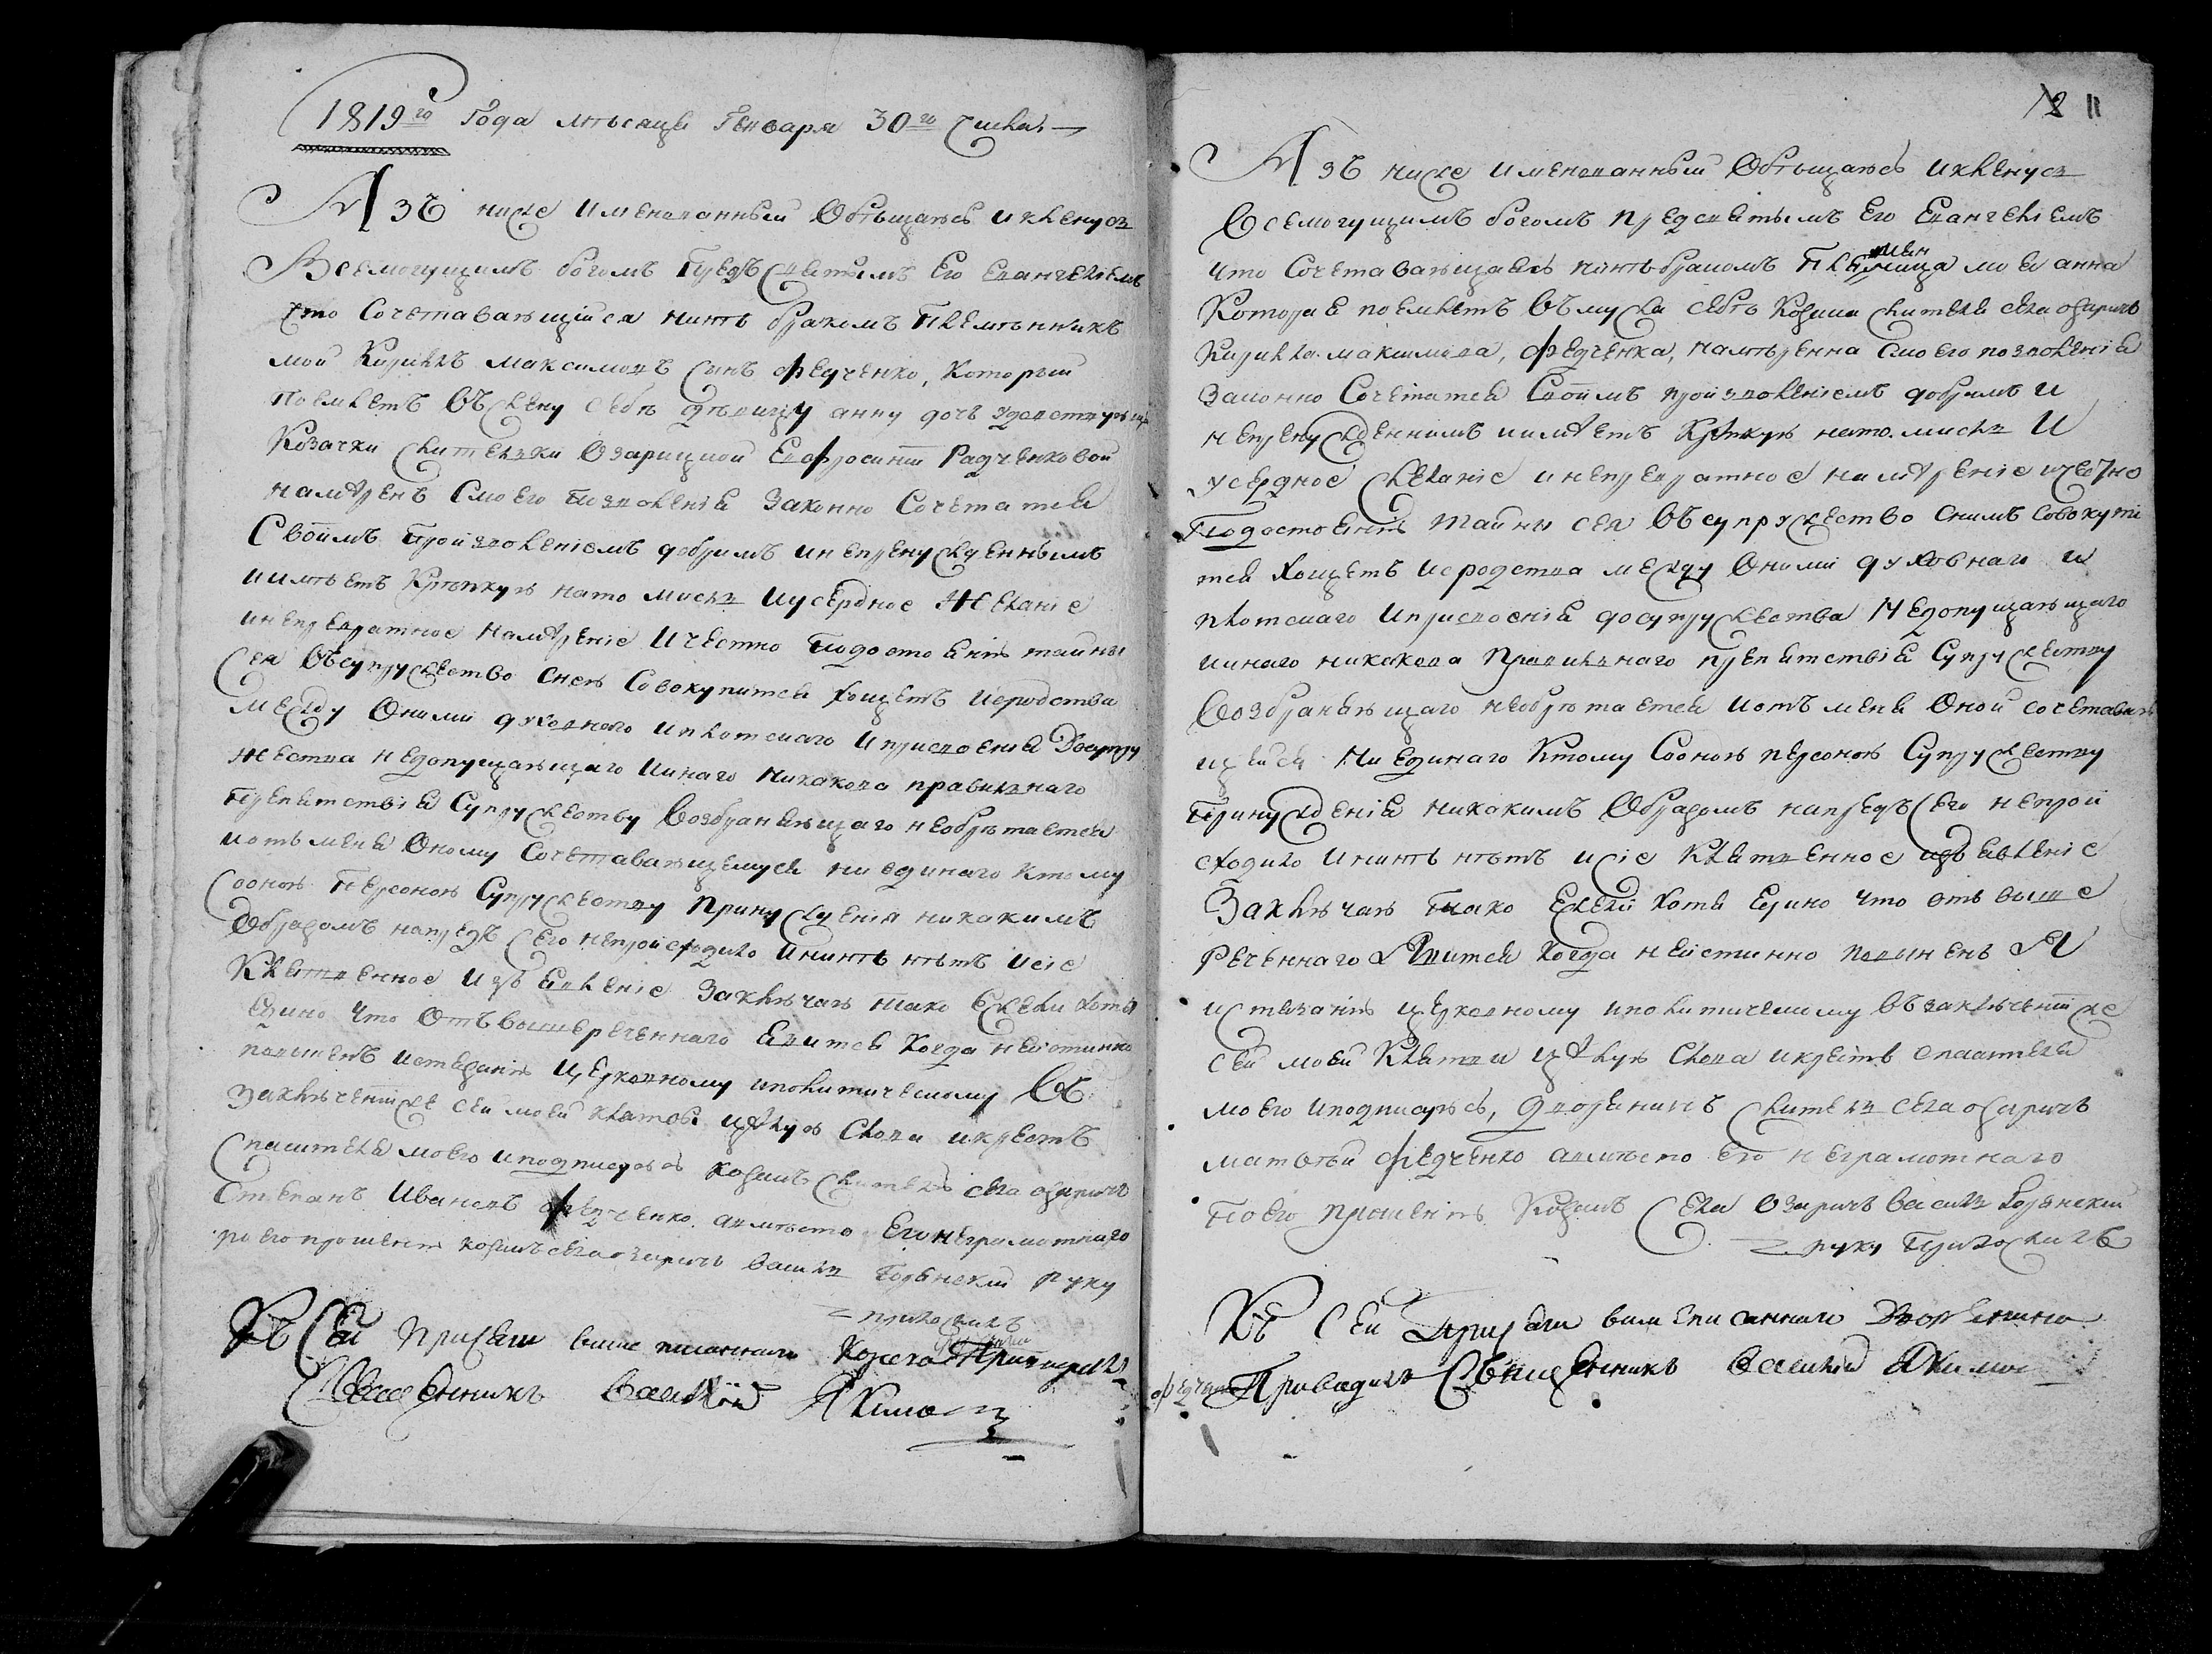 1819го Года мѣсяца Генваря 30го числа
Азъ ниже именованный Обѣщаюсь и кленусь
Всемогущимъ богомъ предъ святымъ Его Евангелиемъ
что Сочетавающійся нинѣ бракомъ племѣнникъ
мой Кирилъ максимовъ сынъ Федченко, который
поемлетъ въ жену себѣ дѣвицу анну дочь
Козачки жителки Озарицкой Евфросиніи Радченковой
намѣренъ смоего позволенія Законно Сочетатся
Своимъ произволеніемъ добримъ и непренужденнымъ
и имѣетъ Крѣпкую нато мисль и усердное Желаніе
и непревратное намѣреніе и честно подостоянію тайны
Сея въсупружество снею Совокупится хощетъ и сродства
между Оними духовного и плотскаго и присвоенія досупру
жества недопущающаго и инаго никакова правилнаго
препятствія Супружеству Возбраняющаго необрѣтается
и отъ меня Оному Сочетавающемуся ни единаго ктому
Сооною Персоною Супружеству принужденія никакимъ
Образомъ напредъ Сего непроисходило и нинѣ нѣтъ и сіе
Клятвенное изъявленіе Заключаю тако Ежели хотя
едино что Отъ вышереченнаго явится когда неистинно
повиненъ истязанію Церковному и политическому Въ
Заключеніи же сей моей клятвы цѣлую Слова и крестъ
Спасителя моего и подписуюсь козакъ житель села озаричъ
Степанъ Ивановъ Федченко. авмѣсто Его неграмотнаго
по его прошенію козакъ села озаричъ василь руку
приложилъ
Къ Сей Присяги више писанного козака Приводилъ
Священникъ Василій Якимов
12 11
Азъ ниже именованный Обѣщаюсь и кленусь
Всемогущимъ богомъ предсвятымъ Его Евангеліемъ
что Сочетавающаясь нинѣ бракомъ моя анна
Которая поемлетъ въ мужа себѣ Козака жителя села озаричъ
Кирила максимова, Федченка, намѣренна смоего позволенія
Законно Сочетатся Своимъ произволеніемъ добримъ и
непренужденнимъ и имѣетъ Крѣпкую нато мисль и
усердное желаніе и непревратное намѣреніе и честно
Подостоянію тайны сея въсупружество снимъ совокупи
тся хощетъ и сродства между Оними духовнаго и
плотскаго и присвоенія досупружества недопущающаго
и инаго никакова правилнаго препятствія Супружеству
Возбраняющаго необрѣтается и отъ меня Оной сочетаваю
щейся ни единаго Ктому Сооною персоною Супружеству
Принужденія никакимъ Образомъ напредъ Сего непрои
сходило и нинѣ нѣтъ и сіе Клятвенное изъявленіе
Заключаю тако Ежели хотя Едино что отъ выше
реченнаго явится когда неистинно повиненъ я
истязанію церковному и политическому въ заключеніи же
сей моей Клятви цѣлую Слова и крестъ спасителя
моего и подписуюсь, дворянинъ житель села озаричъ
матвѣй Федченко авмѣсто его неграмотнаго
По его прошенію Козакъ Села Озаричъ василь
руку Приложилъ
Къ Сей Присяги вишеписаннаго Дворянина
Федченка Приводилъ Священникъ Василий Якимов